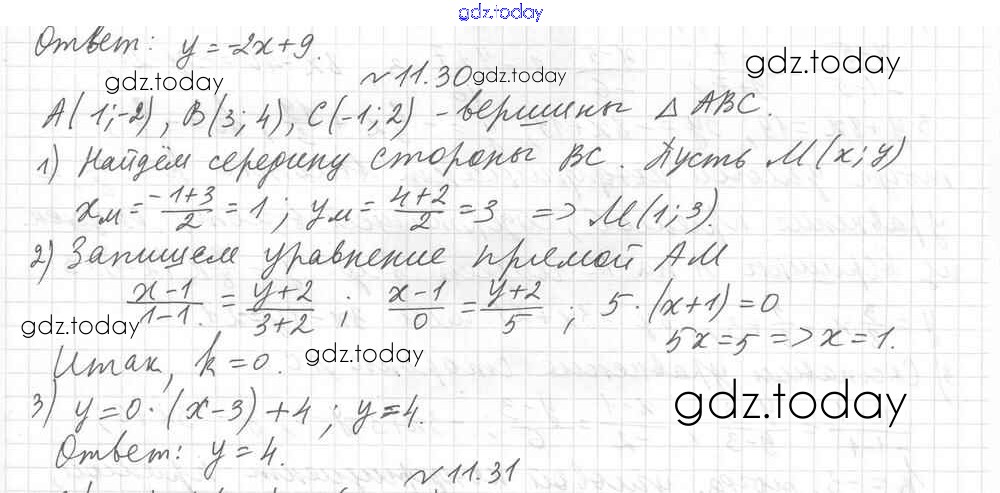 gdz.today
Ответ: y = -2x+9.
gdz.today №11.30 gdz.today gdz.today
A(1;-2), B(3;4), C(-1;2) - вершины △ ABC.
1) Найдём середину стороны BC. Пусть M(x;y)
xM = (-1+3)/2 = 1; yM = (4+2)/2 = 3 => M(1;3).
2) Запишем уравнение прямой AM
(x-1)/(1-1) = (y+2)/(3+2); (x-1)/0 = (y+2)/5; 5·(x+1)=0
gdz.today 5x=5 => x=1.
Итак, k=0. gdz.today
3) y=0·(x-3)+4; y=4.
gdz.today
Ответ: y=4.
№11.31